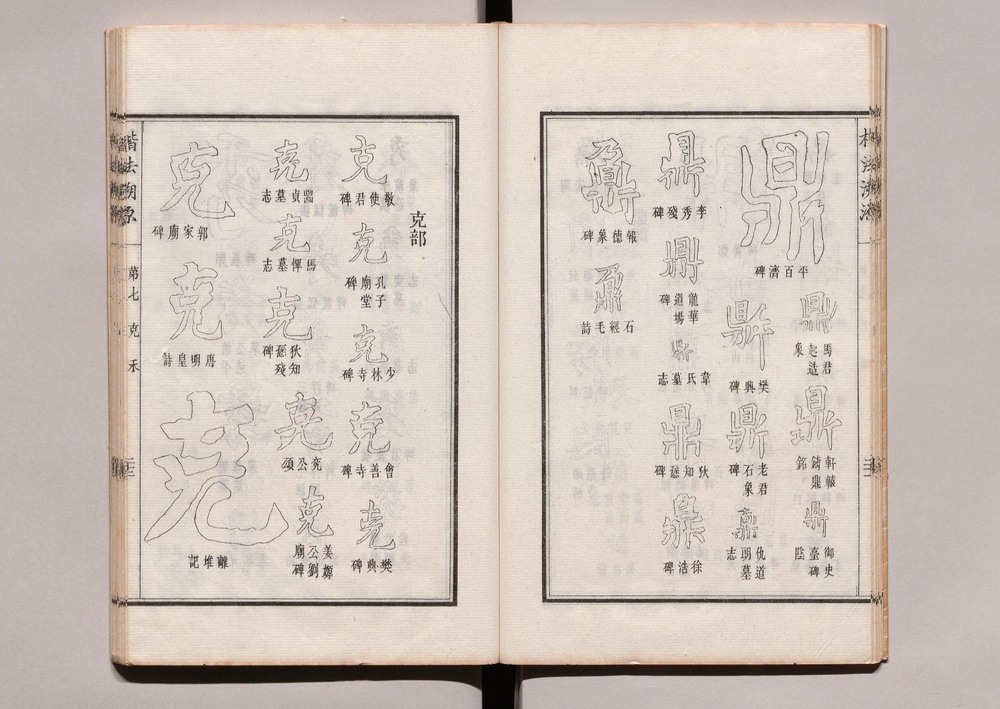 鼎
平百濟碑
鼎
馬君起造象
鼎
軒轅鑄鼎銘
鼎
御史臺碑陰
鼎
樊興碑
鼎
老君石象碑
鼎
仇道朗墓志
鼎
李秀殘碑
鼎
龍華道場碑
鼎
韋氏墓志
鼎
狄知愻碑
鼎
徐浩碑
鼐
報德象碑
鼐
石經毛詩
楷法溯源
第七 克 禾
克部
克
敬使君碑
克
孔子廟堂碑
克
少林寺碑
克
會善寺碑
克
樊興碑
克
墓志
克
馬惲墓志
克
狄知愻殘碑
克
兖公頌
克
姜嫄公劉廟碑
克
郭家廟碑
克
唐明皇詩
克
離堆記